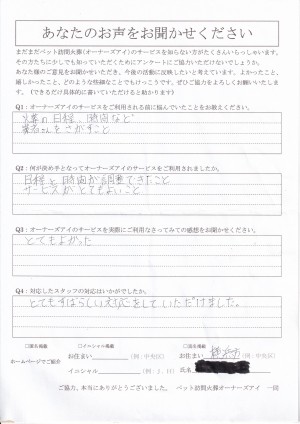 あなたのお声をお聞かせください
まだまだペット訪問火葬(オーナーズアイ)のサービスを知らない方がたくさんいらっしゃいます。
その方たちに少しでも知っていただくためにアンケートにご協力いただけないでしょうか。
あなた様のご意見をお聞かせいただき、今後の活動に反映したいと考えています。よかったこと、
嬉しかったこと、どのような些細なことでもけっこうです。ぜひご協力をよろしくお願いいたします。
(できるだけ具体的に書いていただけると助かります)
Q1:オーナーズアイのサービスをご利用される前に悩んでいたことをお教えください。
火葬の日程、時間など
業者さんをさがすこと
Q2:何が決め手となってオーナーズアイのサービスをご利用されましたか。
日程と時間が調整できたこと
サービスがとてもよいこと
Q3:オーナーズアイのサービスを実際にご利用になさってみての感想をお聞かせください。
とてもよかった
Q4:対応したスタッフの対応はいかがでしたか。
とてもすばらしい対応をしていただけました。
□匿名掲載 □イニシャル掲載 □氏名掲載
ホームページでご紹介 お住まい (例:中央区) お住まい 横浜市 (例:中央区)
イニシャル (例:J.H) 氏名
ご協力、本当にありがとうございました。 ペット訪問火葬オーナーズアイ 一同